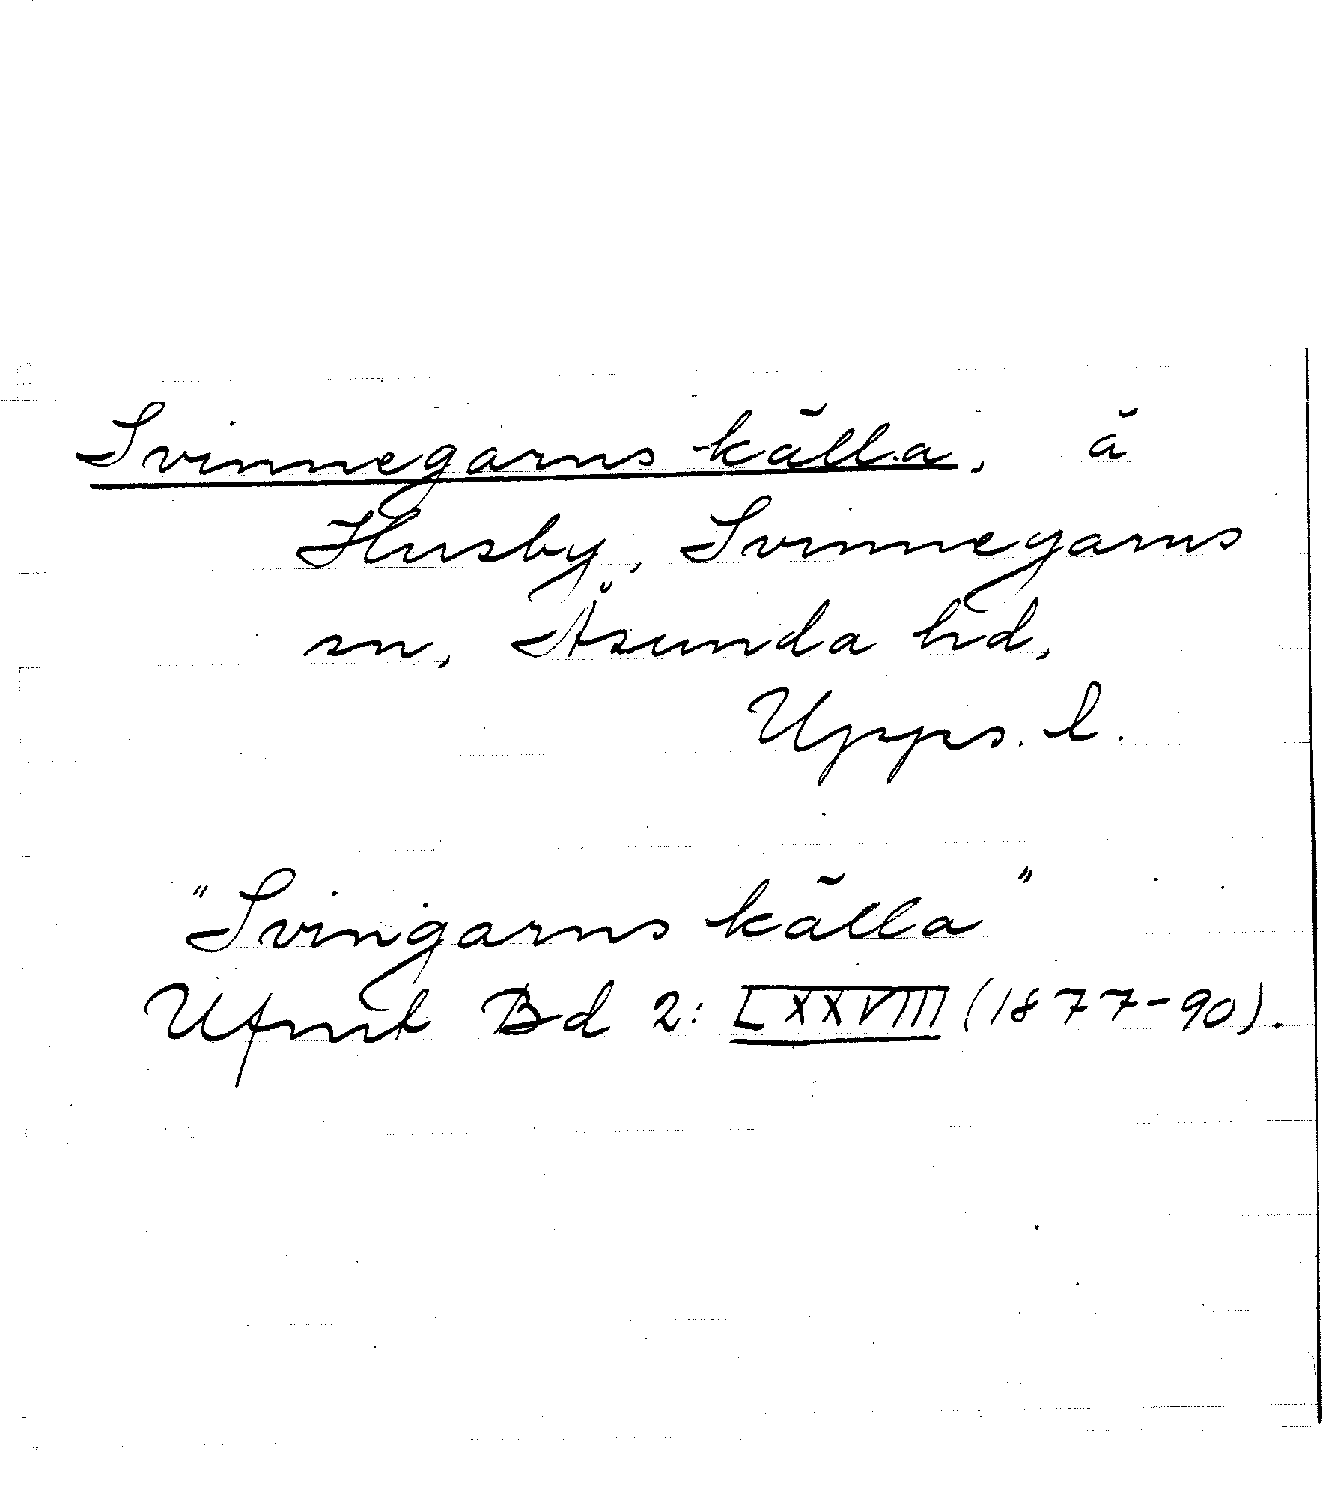 Svinnegarns källa, å
Husby, Svinnegarns
sn, Åsunda hd,
Upps. l.
"Svingarns källa"
Ufmt Bd 2: LXXVIII (1877-90).